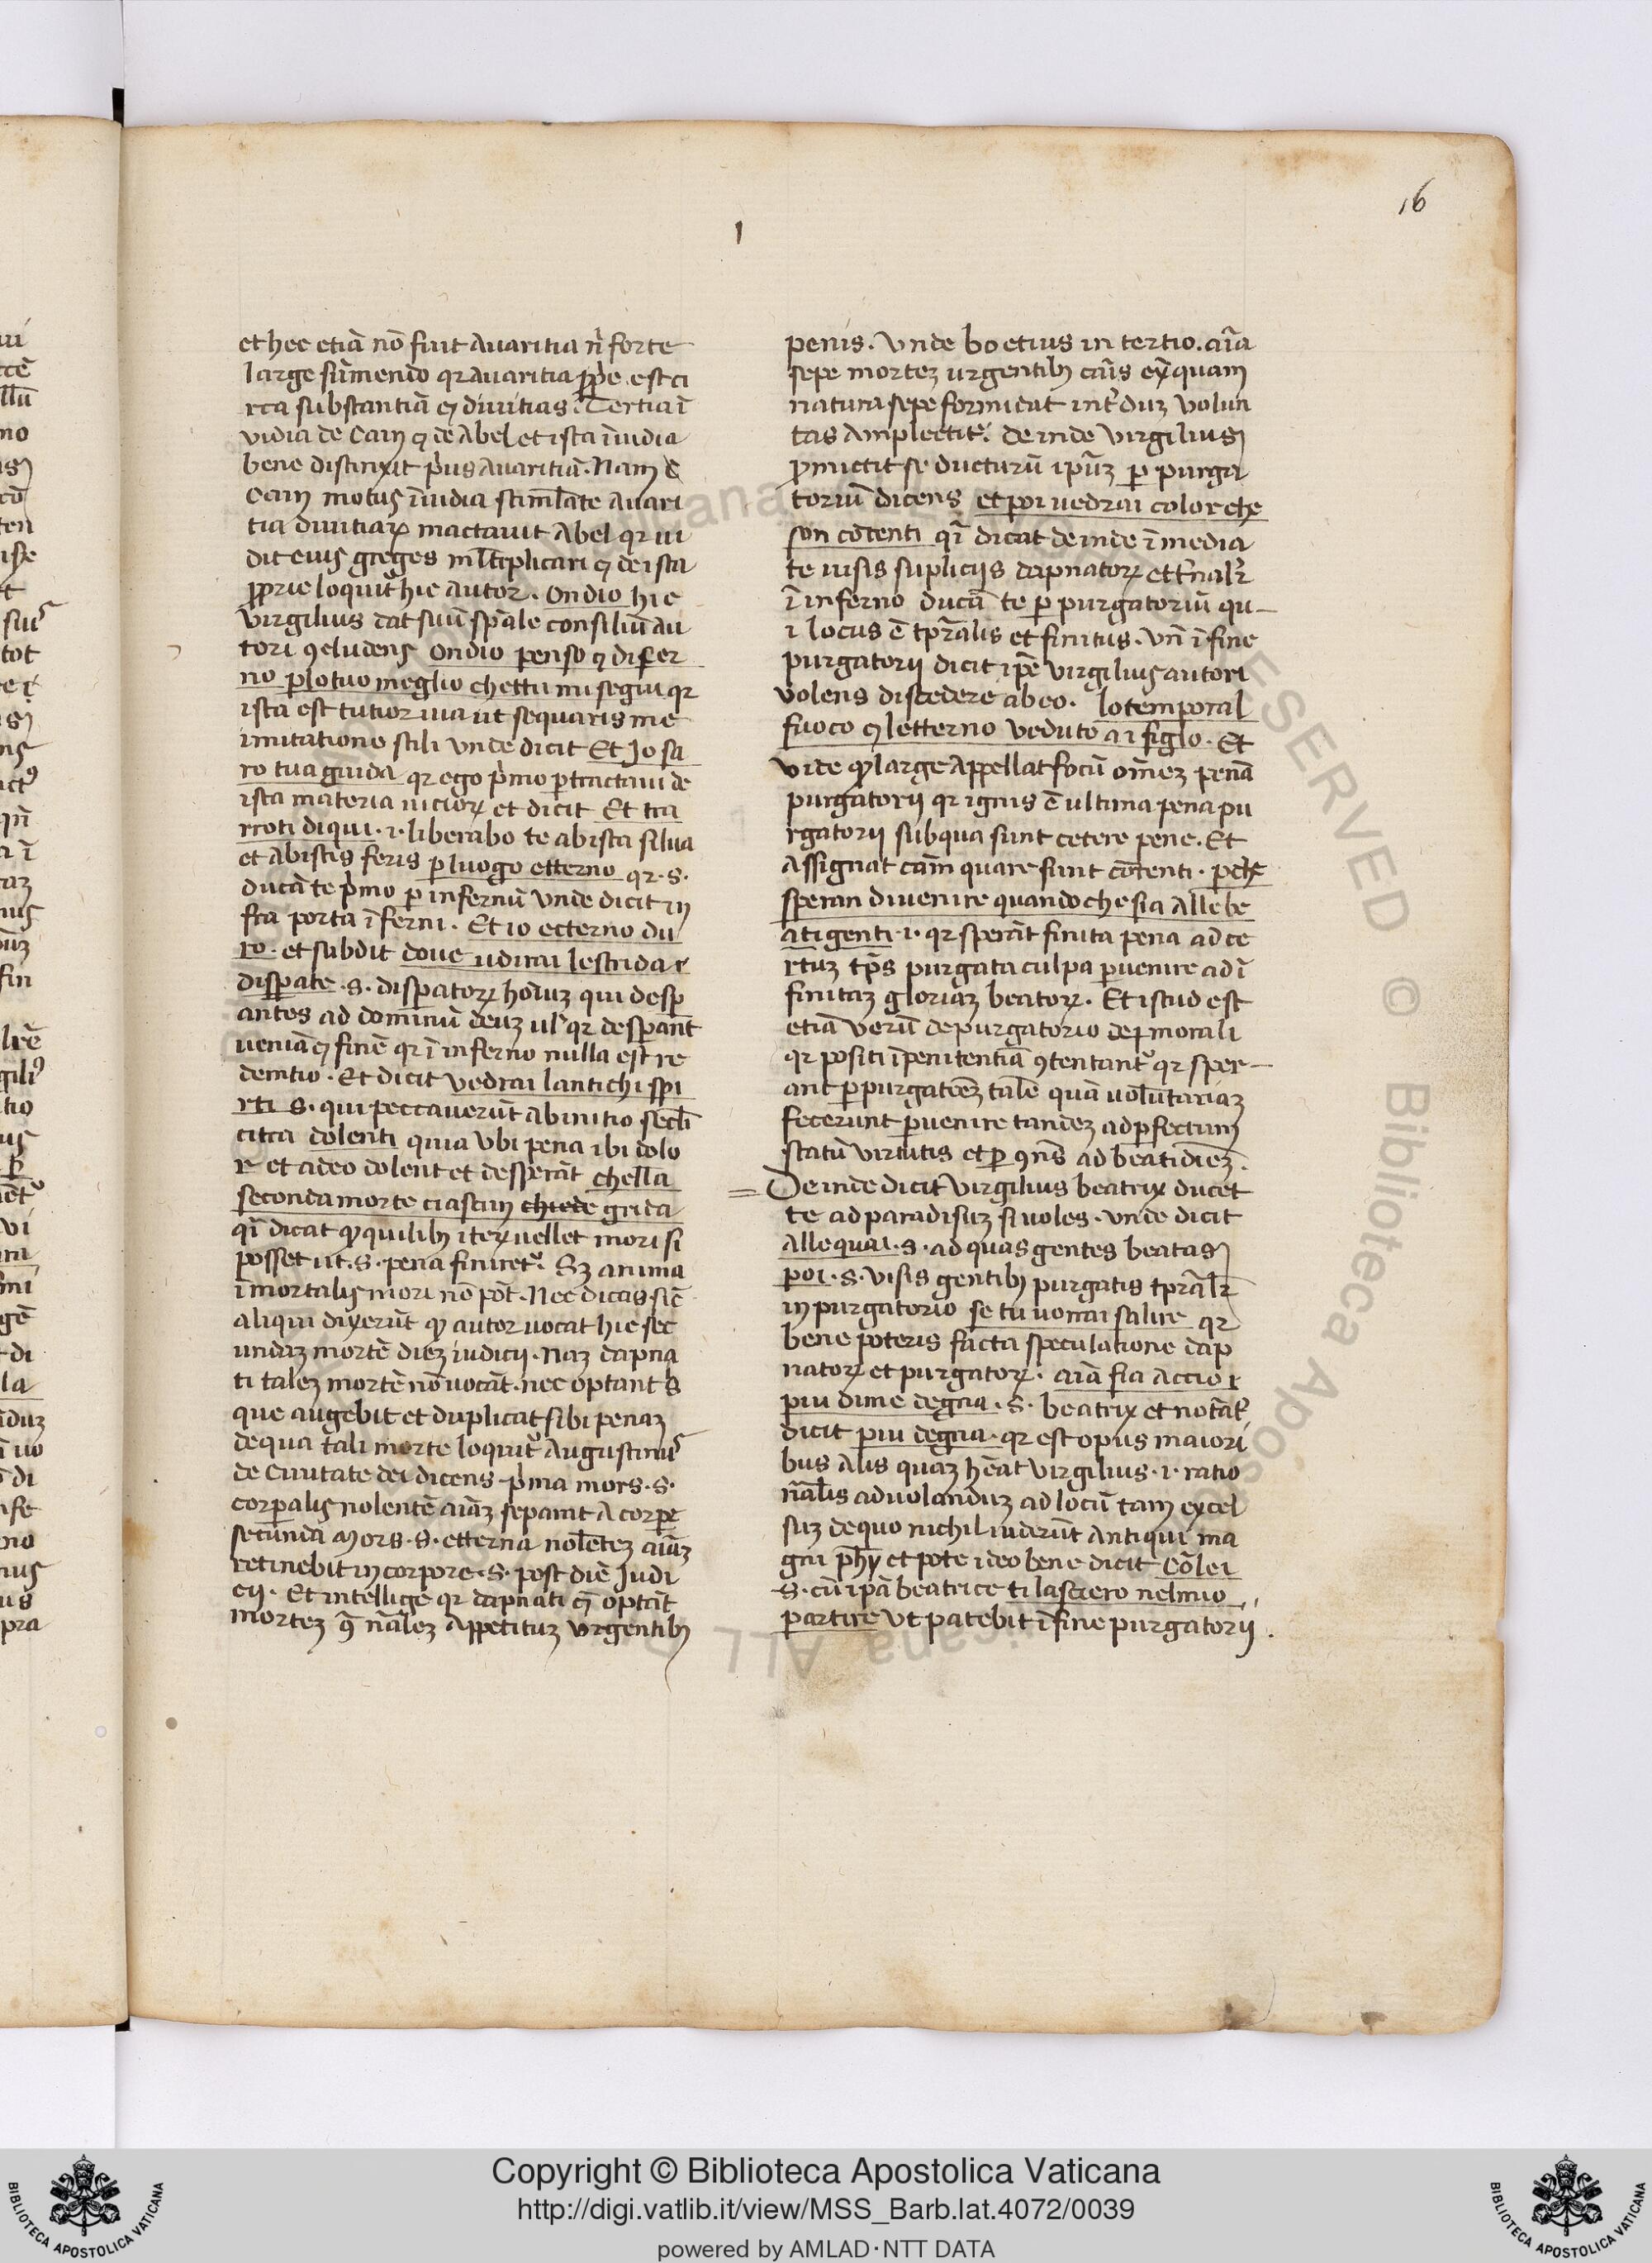 16
1
et hec etiã nõ fuit auaritia nͥ forte
large sum̃endo qr auaritia ꝓpͥe est ci
rca substantiã ⁊ diuitias. Tertia ĩ
vidia de Caỹ ⁊ de Abel et ista ĩuidia
bene distinxit pͥus auaritiã. Nam
Caym motus ĩuidia stimulãte auari
tia diuitiaꝝ mactauit Abel qr ui
dit eius greges mltiplicari ⁊ de ista
ꝓprie loquitᷣ hic autor. Ondio hic
virgilius dat suũ spãle consiliũ au
tori ꝯcludens Ondio penso ⁊ discer
no ꝑ lo tuo meglio chettu mi segui qr
ista est tutior uia ut sequaris me
imitatione stili vnde dicit Et Jo sa
ro tua guida qr ego pͥmo ꝑtractaui de
ista materia uicioꝝ et dicit Et tra
rroti di qui .i. liberabo te ab ista silua
et ab istis feris ꝑ luogo etterno qr .s.
ducã te pͥmo ꝑ infernũ vnde dicit in
fra porta ĩferni. Et io etterno du
ro. et subdit doue udirai le strida
disperate .s. disꝑatoꝝ hoĩuz qui desꝑ
antes ad dominũ deuz ul' qr desperant
ueniã ⁊ finẽ qr ĩ inferno nulla est re
demtio. Et dicit vedrai lantichi spi
rti .s. qui peccauerũt ab initio seculi
citra dolenti quia vbi pena ibi dolo
r et adeo dolent et desperãt chella
seconda morte ciascun chiede grida
qͥ dicat ꝙ quilibꝫ iteꝝ uellet mori si
posset ut .s. pena finiretᷣ. Sꝫ anima
ĩmortalis mori nõ põt. Nec dicas sic̃
aliqui dixerũt ꝙ autor uocat hic sec
undaz mortẽ diez iudicii. Naz dapna
ti talez mortẽ nõ uocãt. nec optant
que augebit et duplicat sibi penaz
de qua tali morte loquitᷣ Augustinus
de Ciuitate dei dicens pͥma mors .s.
corporalis nolentẽ aĩaz separat a corpore
secunda mors .s. etterna nolẽtez aĩaz
retinebit in corpore .s. post diẽ Judi
cii. Et intellige qr dapnati optãt
mortez nãlez Appetituz vrgentibꝫ
penis. vnde boetius in tertio. aĩa
sepe mortez urgentibꝫ caũs quam
natura sepe formidat intᷣduz volun
tas amplectitᷣ. deinde virgilius
ꝓmictit se ducturũ ipũz ꝑ purga
toriũ dicens et poi uedrai color che
son cõtenti qͥ dicat deinde ĩmedia
te uisis supliciis dapnatoꝝ
ĩ inferno ducã te ꝑ purgatoriũ qu
i locus ẽ tprãlis et finitus. vñ ĩ fine
purgatorii dicit ipẽ virgilius autori
volens discedere ab eo. lo temporal
fuoco ⁊ letterno veduto ai figlo. Et
vide ꝙ large appellat focũ omẽz penã
purgatorii qr ignis ẽ ultima pena pu
rgatorii sub qua sunt cetere pene. Et
assignat cãm quare sunt cõtenti. ꝑche
speran diuenire quando che sia alle be
ati genti .i. qr sperãt finita pena ad ce
rtuz tp̃s purgata culpa ꝑuenire ad ĩ
finitaz gloriaz beatoꝝ. Et istud est
etiã verũ de purgatorio morali
qr positi ĩ penitentiã ꝯtentantᷣ qr sper
ant ꝑ purgatõez talẽ quã uolũtariaz
fecerunt ꝑuenire tandez ad ꝑfectum
statũ virtutis et ꝑ ꝯñs ad beatidiẽz.
Deinde dicit virgilius beatrix ducet
te ad paradisuz si uoles. vnde dicit
Alle quai .s. ad quas gentes beatas
poi .s. visis gentibꝫ purgatis tprãlr
in purgatorio se tu uorrai salire qr
bene poteris facta speculatione dap
natoꝝ et purgatoꝝ. aĩa fia accio
piu di me degna .s. beatrix et
dicit piu degna. qr est opus maiori
bus alis quaz hẽat virgilius .i. ratio
nãlis ad uolanduz ad locũ tam excel
suz de quo nichil uiderũt antiqui ma
gni phỹ et pote ideo bene dicit Cõ lei
.s. cũ ipã beatrice ti lasciero nel mio
ꝑartire vt patebit ĩ fine purgatorii.
Copyright © Biblioteca Apostolica Vaticana
http://digi.vatlib.it/view/MSS_Barb.lat.4072/0039
powered by AMLAD·NTT DATA
BIBLIOTECA APOSTOLICA VATICANA
BIBLIOTECA APOSTOLICA VATICANA